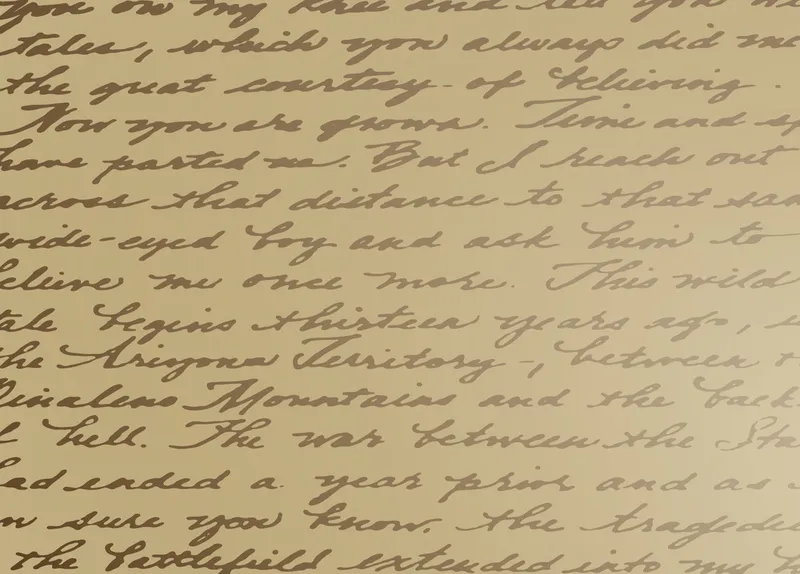 you on my knee and tell you
tales, which you always did me
the great courtesy of believing.
Now you are grown. Time and
have parted me. But I reach out
across that distance to that
wide-eyed boy and ask him to
elieve me once more. This wild
tale begins thirteen years ago,
the Arizona Territory, between
Pinaleno Mountains and the back
hell. The war between the Sta
had ended a year prior and as
sure you know, the tragedie
the battlefield extended into my